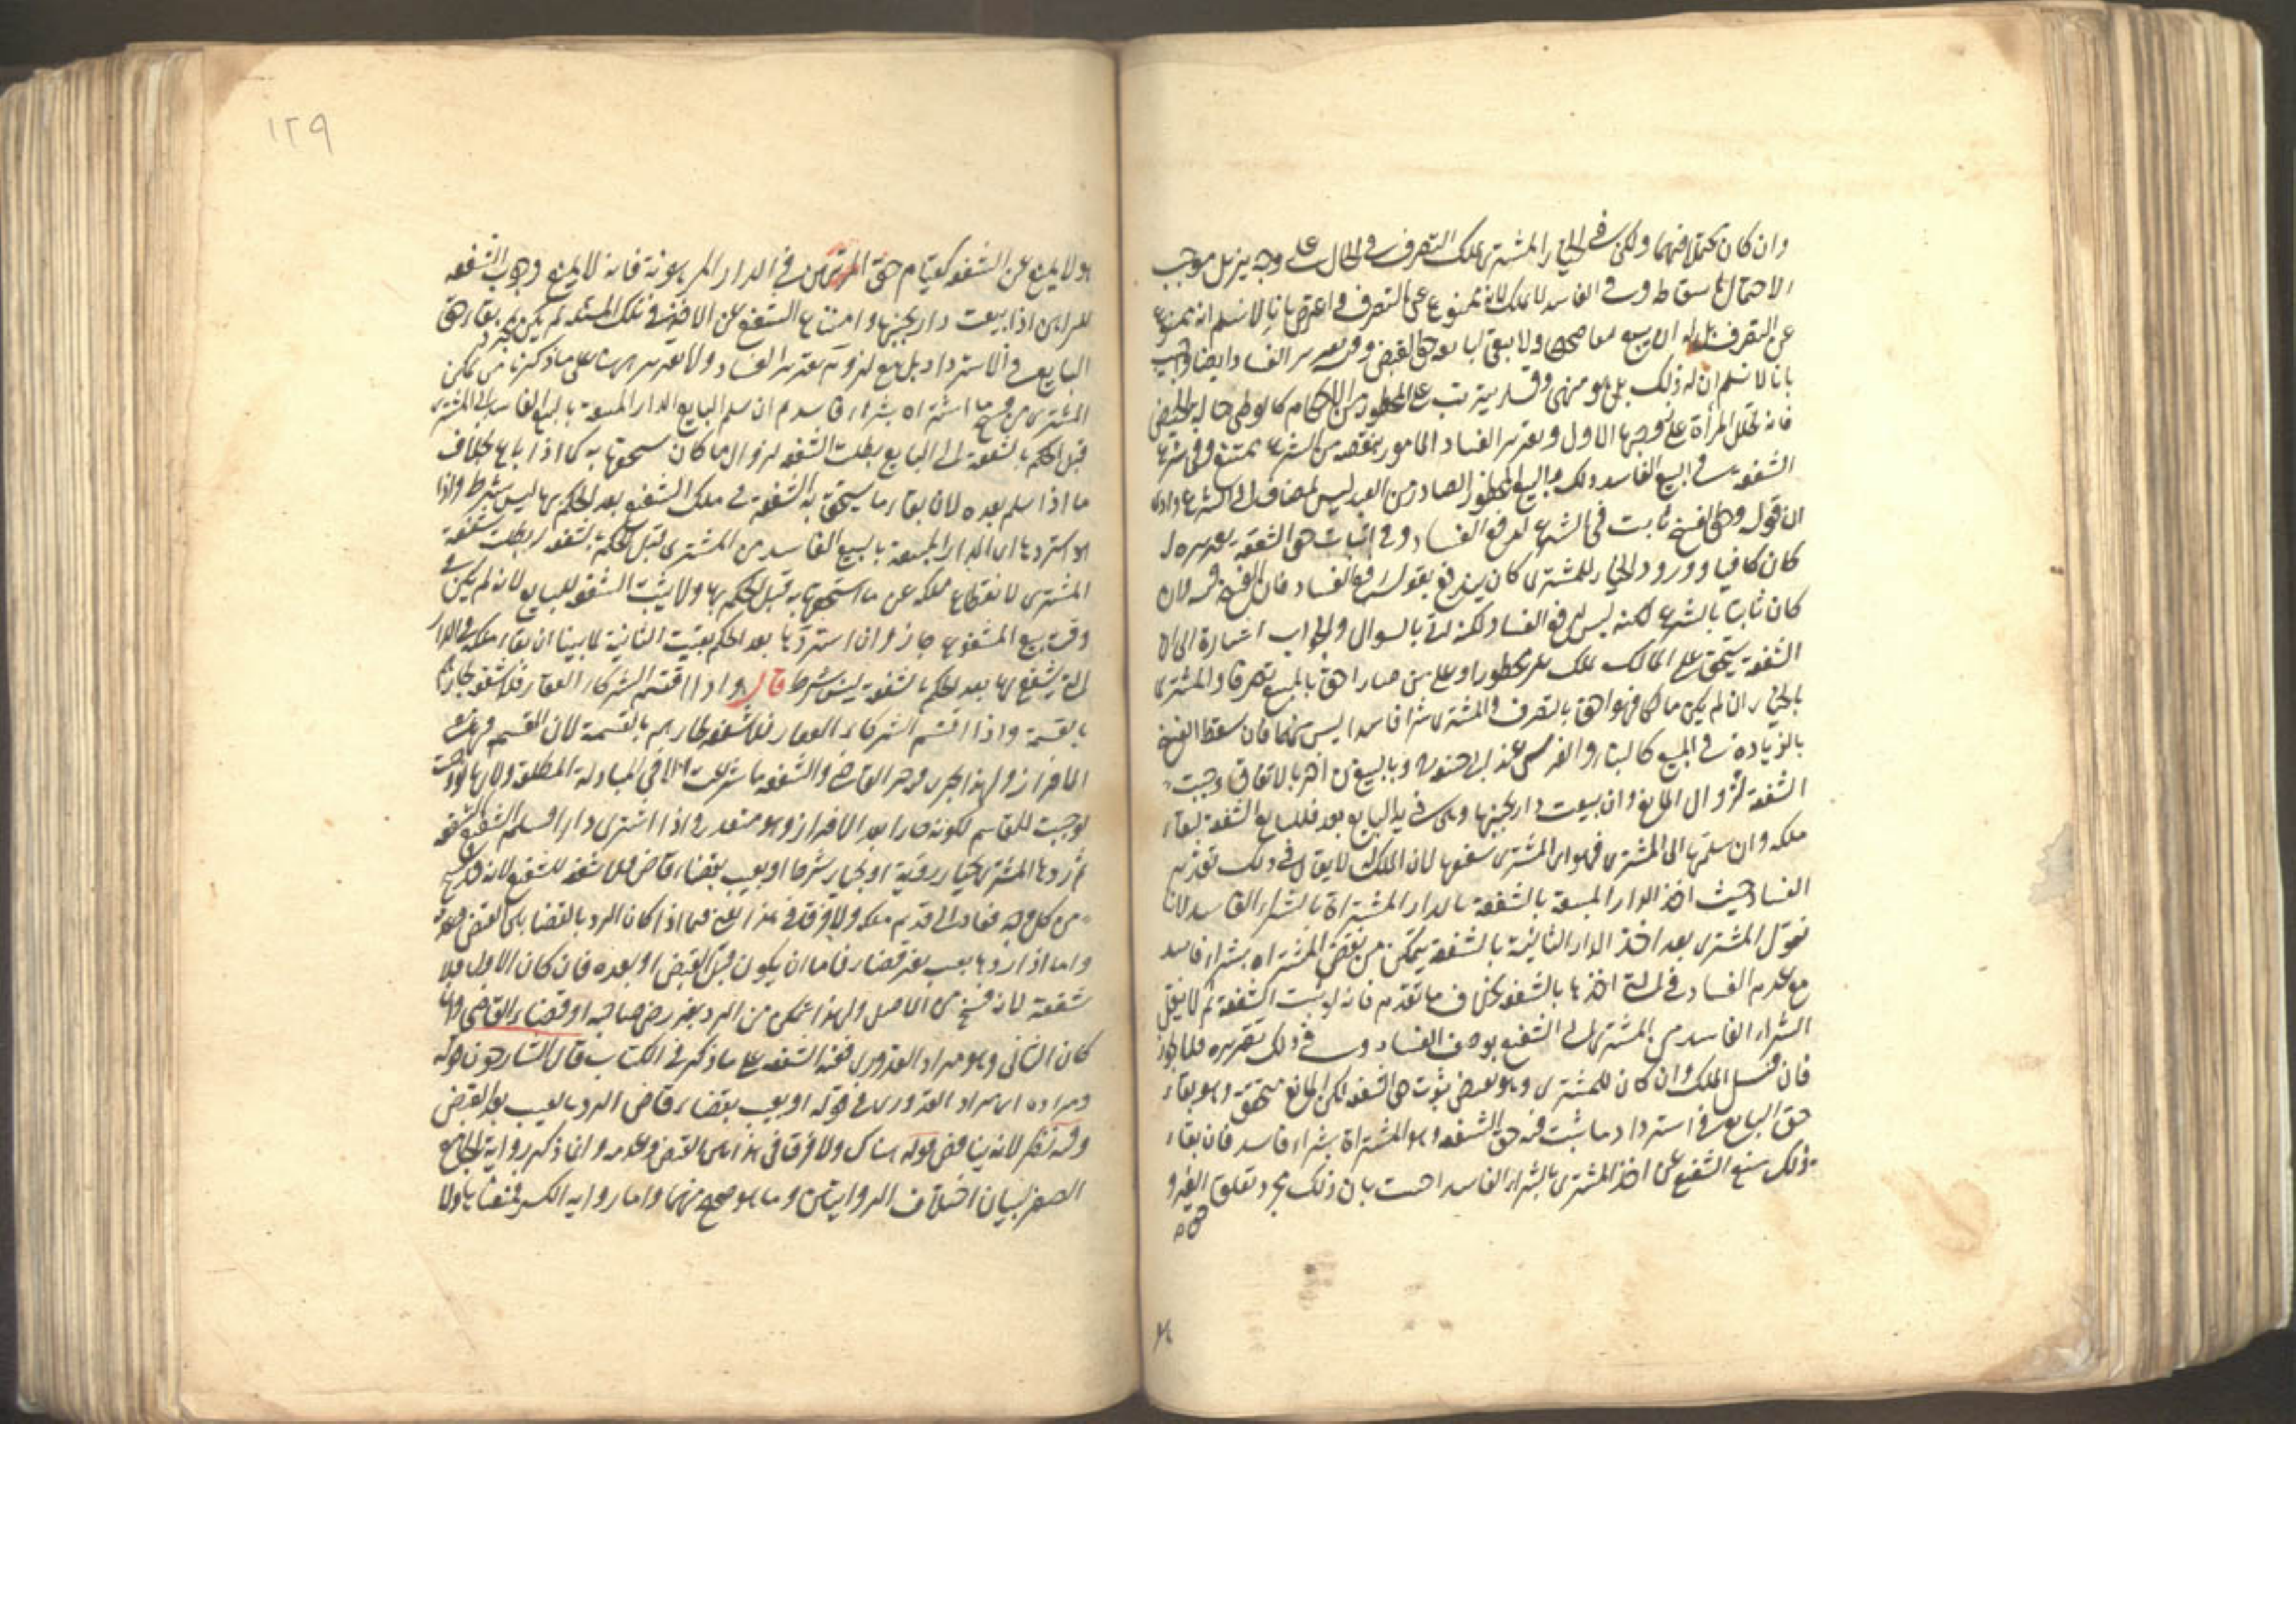 وان كان محتملا فيهما ولكن في الخيار المشتري يملك التصرف في الحال على وجه يزيل موجب
الاحتمال باسقاط وفي الفاسد لا يملك لانه ممنوع عن التصرف فاعترض بانا لا نسلم انه ممنوع
عن التصرف بل له ان يبيع بيعا صحيحا ولا يبقى للبايع حق القبض وفيه تقرير الفساد وايضا واجيب
بانا لا نسلم ان له ذلك بل هو منهي وقد يترتب على المحظور من الاحكام كالوطئ حالة الحيض
فانه يحلل المرأة على زوجها الاول وتقرير الفساد المامور بنقضه من الشرع ممتنع وفي شرع
الشفعة في البيع الفاسد ذلك والبيع المحظور الصادر من العبد ليس بمضاف الى الشرع
ان قوله وحق الفسخ ثابت في الشرع لدفع الفساد وفي اثبات حق الشفعة تقريره لو
كان كافيا وورود الخيار للمشتري كان يندفع بقوله لدفع الفساد فان الفسخ فيه وان
كان ثابتا بالشرع لكنه ليس لدفع الفساد لكنه اتى بالسوال والجواب اشارة الى ان
الشفعة يستحق على المالك ملك غير محظور او على من صار احق بالمبيع تصرفا والمشتري
بالخيار ان لم يكن مالكا فهو احق بالتصرف والمشتري شراء فاسدا ليس منهما فان سقط الفسخ
بالزيادة في المبيع كالبناء والغرس عند ابي حنيفة وبالبيع من اخر بالاتفاق وجبت
الشفعة لزوال المانع وان بيعت دار بجنبها وهي في يد البايع بعد فللبايع الشفعة لبقاء
ملكه وان سلمها الى المشتري فهو اي المشتري شفيعها لان الملك له لا يقال في ذلك تقرير
الفساد حيث اخذ الدار المبيعة بالشفعة بالدار المشتراة بالشراء الفاسد لانا
نقول المشتري بعد اخذ الدار الثانية بالشفعة يتمكن من نقض المشتراه بشراء فاسد
مع عدم الفساد في التي اخذها بالشفعة بخلاف ما تقدم فانه لو ثبت الشفعة ثم لا ينتقل
الشراء الفاسد من المشتري الى الشفيع بوصف الفساد وفي ذلك تقريره فلا يجوز
فان قيل الملك وان كان للمشتري وهو يقتضي ثبوت حق الشفعة لكن المانع متحقق وهو بقاء
حق البايع في استرداد ما ثبت فيه حق الشفعة وهو المشتراة بشراء فاسد فان بقاء
ذلك يمنع الشفيع عن اخذ المشتري بالشراء الفاسد اجيب بان ذلك مجرد تعلق الغير و
هو لا يمنع عن الشفعة كقيام حق المرتهن في الدار المرهونة فانه لا يمنع وجوب الشفعة
للراهن اذا بيعت دار بجنبها وامتناع الشفيع عن الاخذ في تلك المسئلة لم يكن لمجرد بقاء حق
البايع في الاسترداد بل مع لزوم تقرير الفساد ولا تقرير ههنا على ما ذكرنا من تمكن
المشتري من فسخ ما اشتراه بشراء فاسد ثم ان سلم البايع الدار المبيعة بالبيع الفاسد الى المشتري
قبل الحكم بالشفعة الى البايع بطلت الشفعة لزوال ما كان يستحقها به كما اذا باع بخلاف
ما اذا سلم بعده لان بقاء ما يستحق به الشفعة في ملك الشفيع بعد الحكم بها ليس بشرط واذا
استردها اي الدار المبيعة بالبيع الفاسد من المشتري قبل الحكم بالشفعة بطلت شفعة
المشتري لانقطاع ملكه عن ما استحقها به قبل الحكم بها ولا يثبت الشفعة للبايع لانه لم يكن في
وقت بيع المشفوع جارا وان استردها بعد الحكم بقيت الثانية لما بينا ان بقاء ملكه في الدار
التي يشفع بها بعد الحكم بالشفعة ليس بشرط قال واذا اقتسم الشركاء العقار فلا شفعة لجارهم
بالقسمة واذا اقتسم الشركاء العقار فلا شفعة لجارهم بالقسمة لان القسمة فيها معنى
الافراز ولهذا يجري فيه جبر القاضي والشفعة ما شرعت الا في المبادلة المطلقة ولانها لو وجبت
لوجبت للمقاسم لكونه جارا بعد الافراز وهو متعذر واذا اشترى دارا فسلم الشفيع الشفعة
ثم ردها المشتري بخيار رؤية او بخيار شرط او بعيب بقضاء قاض فلا شفعة للشفيع لانه فسخ
من كل وجه فعاد الى قديم ملكه ولا فرق في هذا بين ما اذا كان الرد بالقضاء قبل القبض وبعده
واما اذا ردها بعيب بغير قضاء فاما ان يكون قبل القبض او بعده فان كان الاول فلا
شفعة لانه فسخ من الاصل ولهذا يتمكن من الرد بغير رضى صاحبه او قضاء القاضي وان
كان الثاني وهو مراد القدوري ففيه الشفعة على ما ذكر في الكتاب قال الشارحون قوله
ومراده اي مراد القدوري في قوله او بعيب بقضاء قاض الرد بالعيب بعد القبض
وفيه نظر لانه يناقض قوله هناك ولا فرق في هذا بين القبض وعدمه وانما ذكر رواية الجامع
الصغير لبيان اختلاف الروايتين وما هو صحيح منهما واما رواية الكسر فمعناها ولا
١٢٩